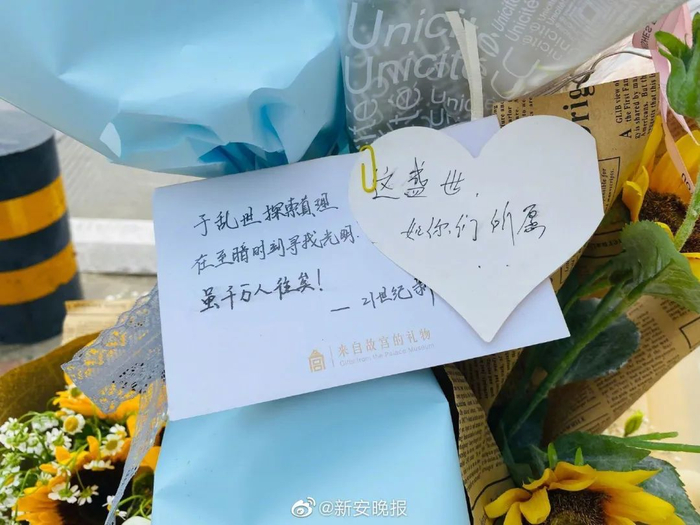 Unicité
Unicité
Unicité
于乱世探索真理
在至暗时刻寻找光明.
虽千万人往矣!
—21世纪新
这盛世,
如你们所愿
...
来自故宫的礼物
Gifts from the Palace Museum
@新安晚报